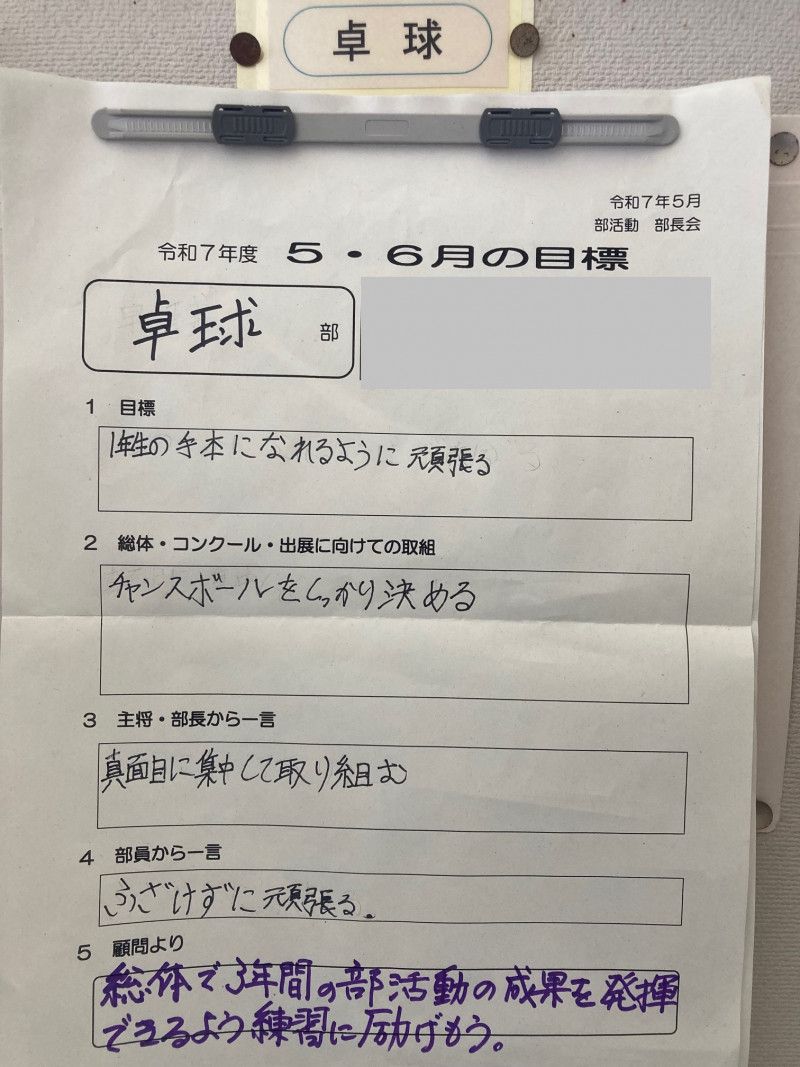 卓球
令和7年5月
部活動 部長会
令和7年度 5・6月の目標
卓球 部
1 目標
1年生の手本になれるように頑張る
2 総体・コンクール・出展に向けての取組
チャンスボールをしっかり決める
3 主将・部長から一言
真面目に集中して取り組む
4 部員から一言
ふざけずに頑張る。
5 顧問より
総体で3年間の部活動の成果を発揮
できるよう練習に励げもう。